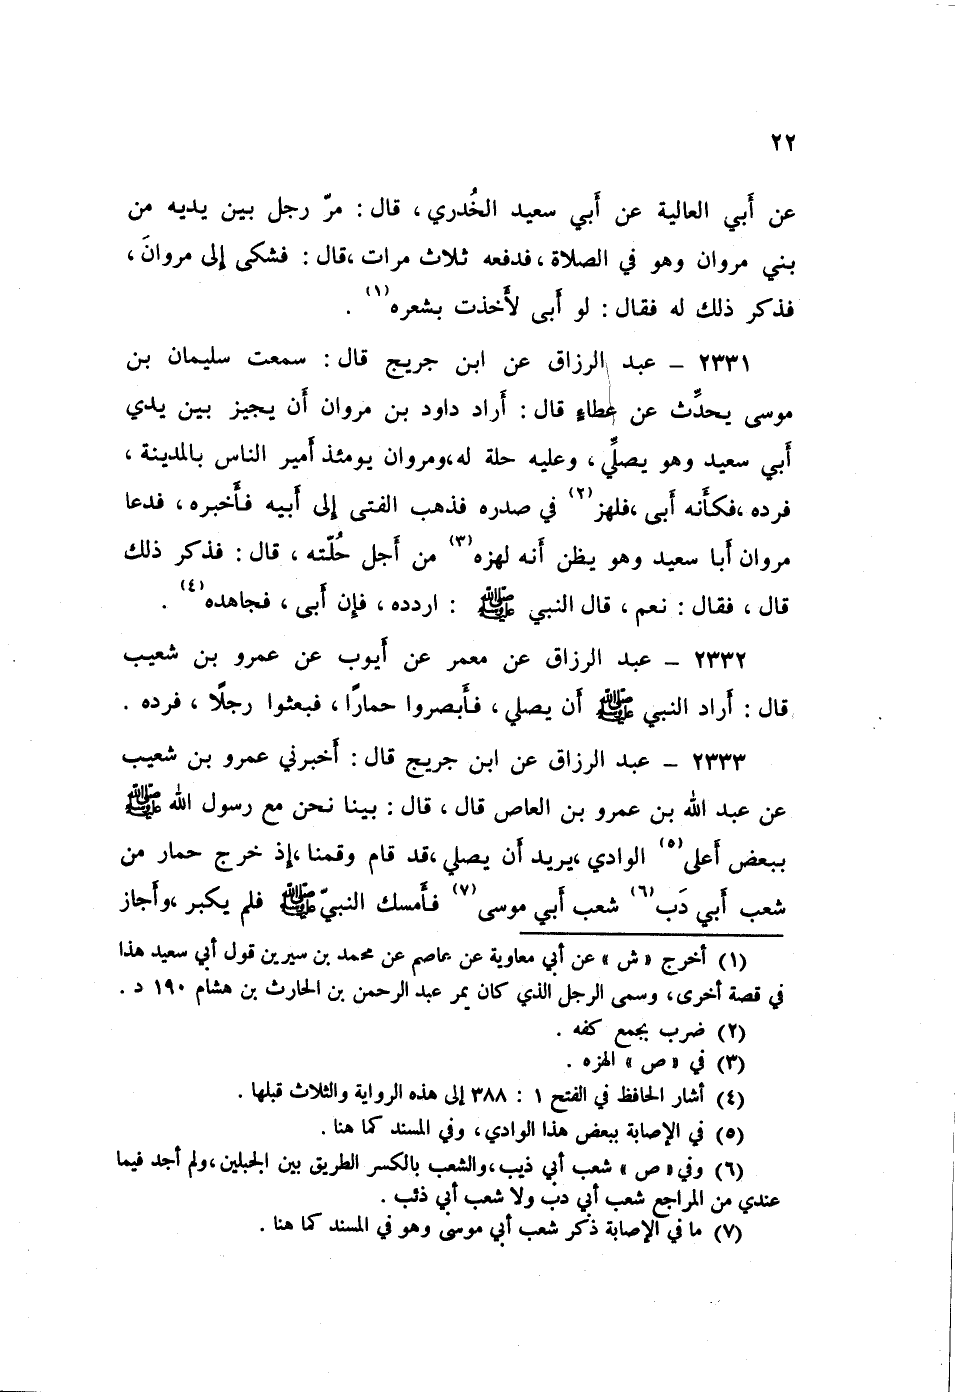 ٢٢
عن أَبي العالية عن أَبي سعيد الخُدري ، قال : مرّ رجل بين يديه من
بني مروان وهو في الصلاة ، فدفعه ثلاث مرات ، قال : فشكى إلى مروانَ ،
فذكر ذلك له فقال : لو أَبى لأَخذت بشعره (١) .
٢٣٣١ – عبد الرزاق عن ابن جريج قال : سمعت سليمان بن
موسى يحدِّث عن عطاء قال : أَراد داود بن مروان أَن يجيز بين يدي
أَبي سعيد وهو يصلِّي ، وعليه حلة له ، ومروان يومئذ أَمير الناس بالمدينة ،
فرده ، فكأَنه أَبى ، فلهز (٢) في صدره فذهب الفتى إلى أَبيه فأَخبره ، فدعا
مروان أَبا سعيد وهو يظن أَنه لهزه (٣) من أَجل حُلّته ، قال : فذكر ذلك
قال ، فقال : نعم ، قال النبي ﷺ : اردده ، فإن أَبى ، فجاهده (٤) .
٢٣٣٢ – عبد الرزاق عن معمر عن أَيوب عن عمرو بن شعيب
قال : أَراد النبي ﷺ أَن يصلي ، فأَبصروا حمارًا ، فبعثوا رجلًا ، فرده .
٢٣٣٣ – عبد الرزاق عن ابن جريج قال : أَخبرني عمرو بن شعيب
عن عبد الله بن عمرو بن العاص قال ، قال : بينا نحن مع رسول الله ﷺ
ببعض أَعلى (٥) الوادي ، يريد أَن يصلي ، قد قام وقمنا ، إذ خرج حمار من
شعب أَبي دَب (٦) شعب أَبي موسى (٧) فأَمسك النبيّ ﷺ فلم يكبر ، وأَجاز
(١) أخرج « ش » عن أبي معاوية عن عاصم عن محمد بن سيرين قول أبي سعيد هذا
في قصة أخرى ، وسمى الرجل الذي كان يمر عبد الرحمن بن الحارث بن هشام ١٩٠ د .
(٢) ضرب بجمع كفه .
(٣) في « ص » الهزه .
(٤) أشار الحافظ في الفتح ١ : ٣٨٨ إلى هذه الرواية والثلاث قبلها .
(٥) في الإصابة ببعض هذا الوادي ، وفي المسند كما هنا .
(٦) وفي « ص » شعب أبي ذيب ، والشعب بالكسر الطريق بين الجبلين ، ولم أجد فيما
عندي من المراجع شعب أبي دب ولا شعب أبي ذئب .
(٧) ما في الإصابة ذكر شعب أبي موسى وهو في المسند كما هنا .